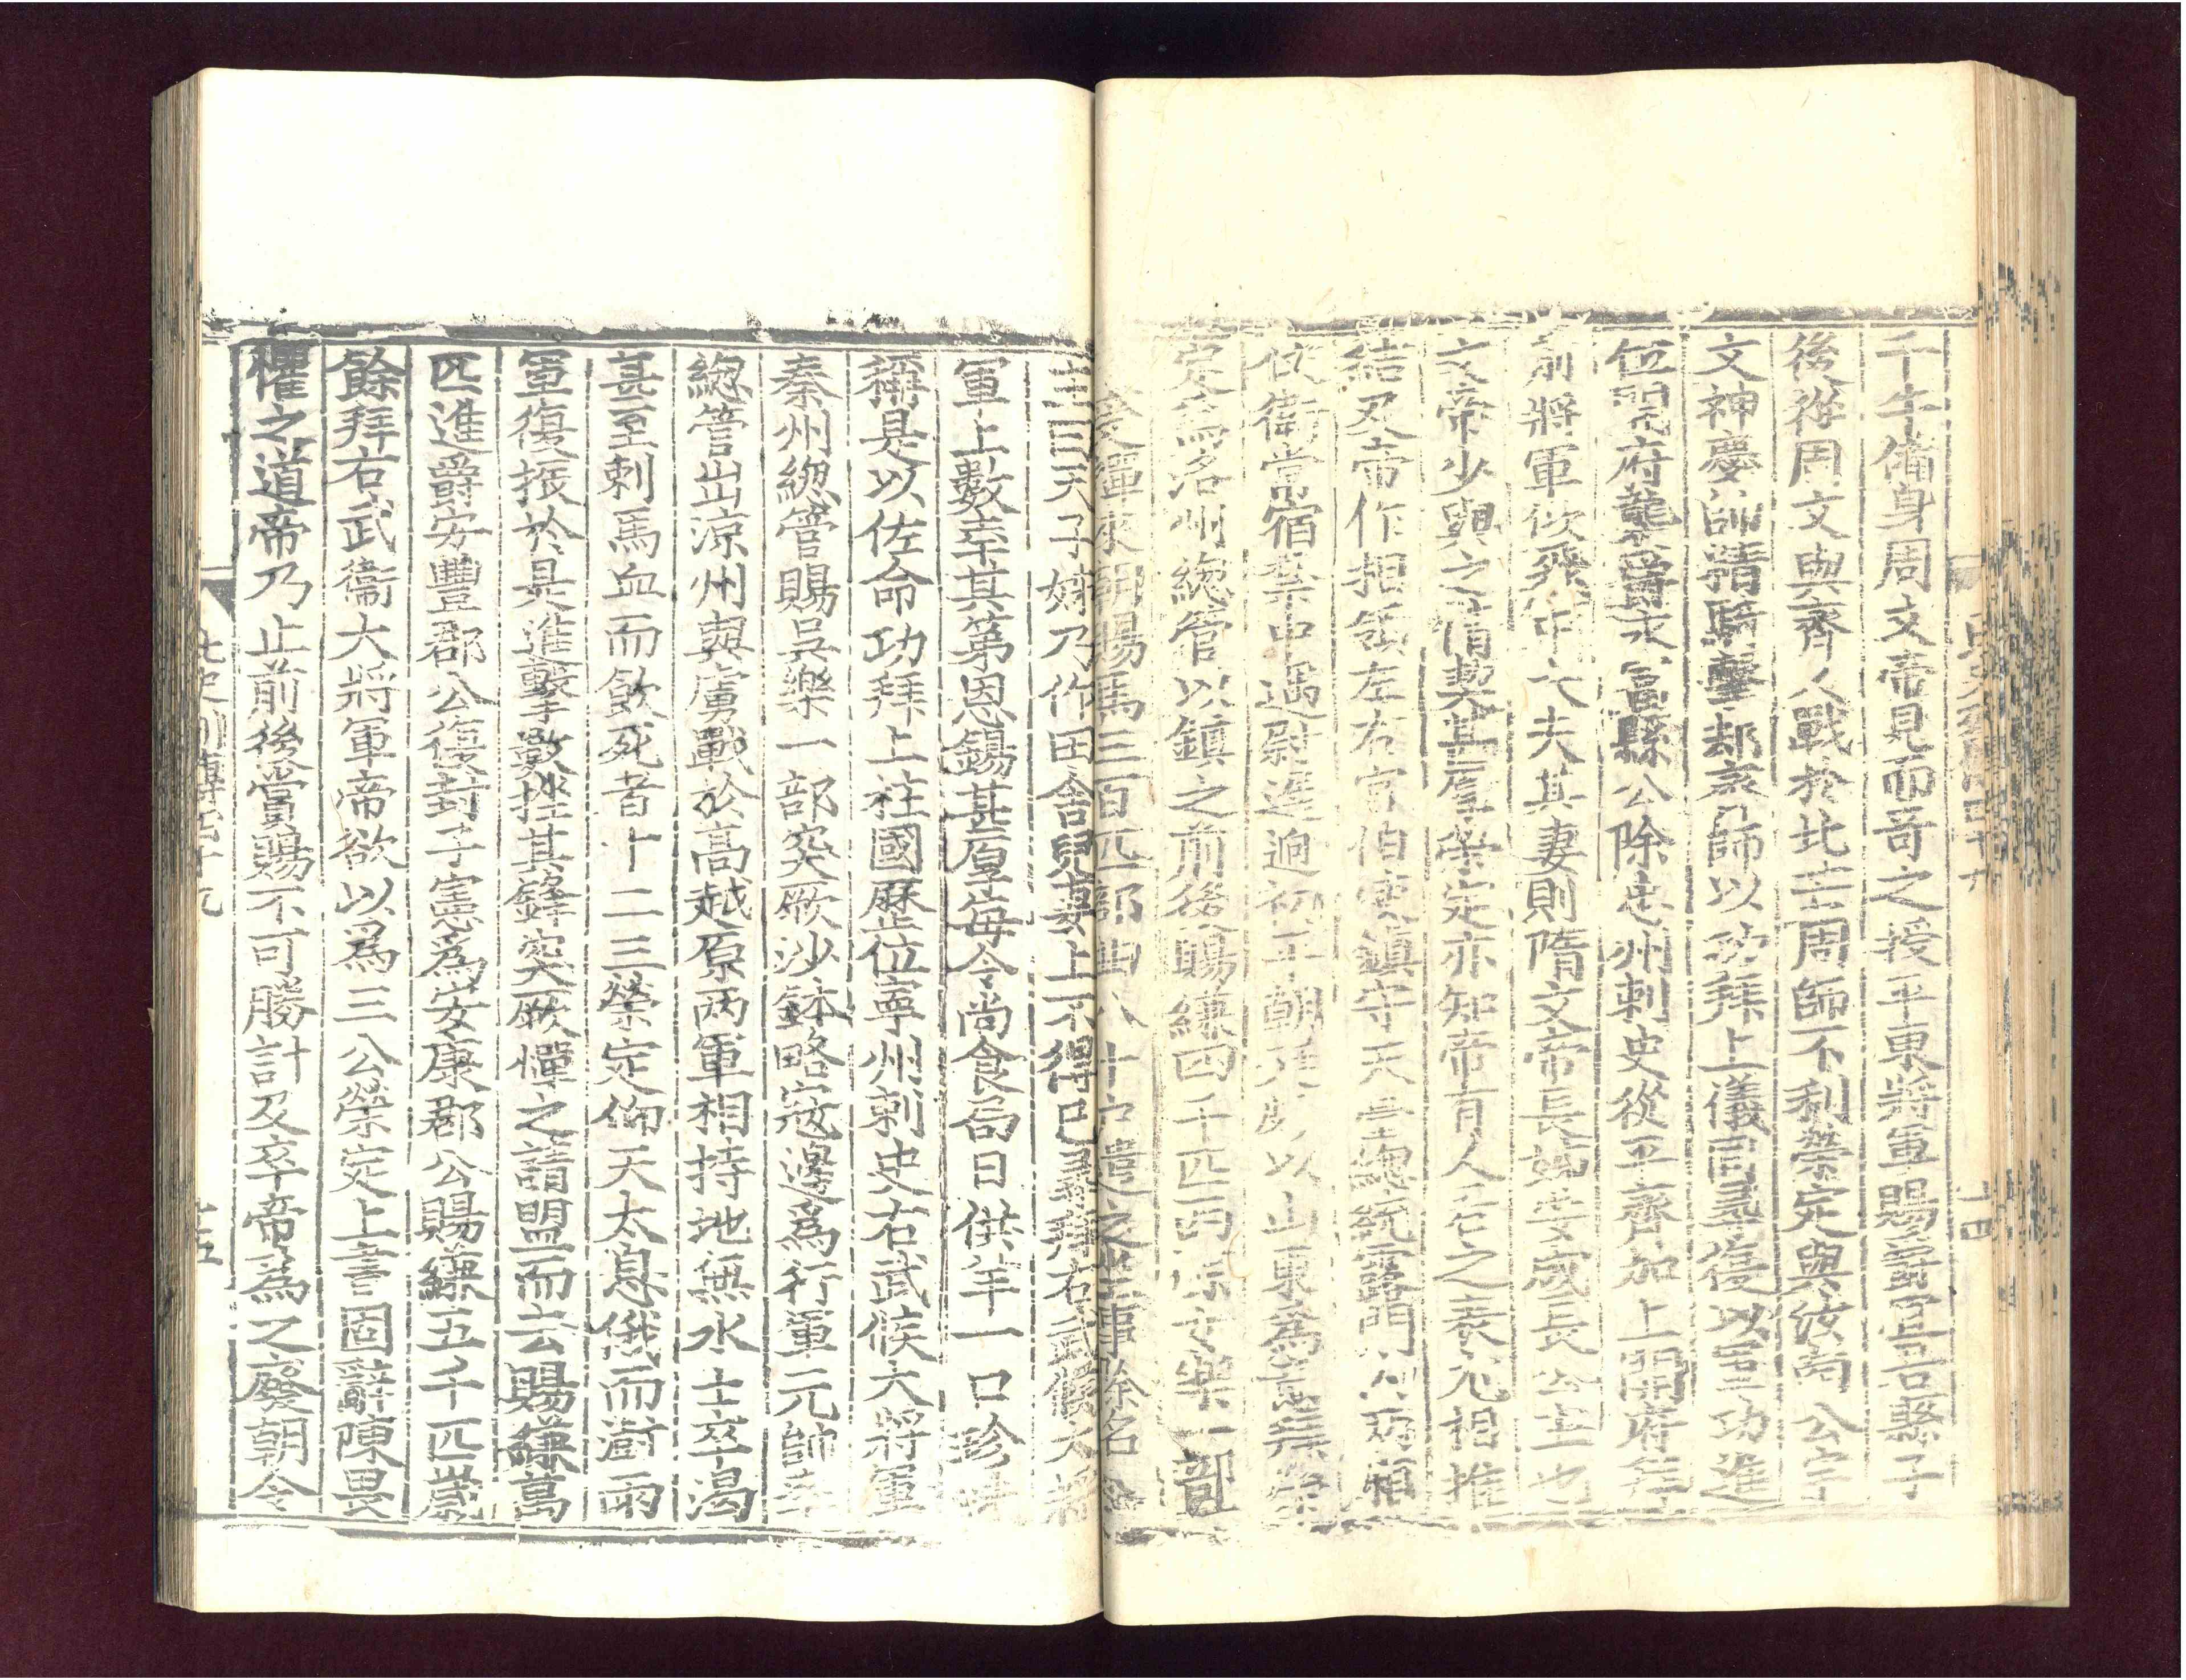 千牛備身周文帝見而奇之授平東將軍賜爵宜君縣子
後從周文與齊人戰於北芒周師不利榮定與汝南公宇
文神慶帥精騎擊却齊師以功拜上儀同尋復以軍功進
位開府襲爵永富縣公除忠州刺史從平齊加上開府拜
前將軍佽飛中大夫其妻則隋文帝長姊安成長公主也
文帝少與之情契甚厚榮定亦知帝有人君之表尤相推
結及帝作相領左右宮伯使鎮守天臺總統露門內兩廂
仗衛常宿禁中遇尉遲迥初平朝廷以山東為意拜榮
定爲洛州總管以鎮之前後賜縑四千匹西凉女樂一部
受禪來朝賜馬三百匹部曲八十戶遣之坐事除名
主曰天子姊乃作田舍兒妻上不得已尋拜右武候大將
軍上數幸其第恩錫甚厚每令尚食局日供羊一口珍味
稱是以佐命功拜上柱國歷位寧州刺史右武候大將軍
秦州總管賜吳樂一部突厥沙鉢略寇邊爲行軍元帥率
總管出凉州與虜戰於高越原兩軍相持地無水士卒渴
甚至刺馬血而飲死者十二三榮定仰天太息俄而澍雨
軍復振於是進擊數挫其鋒突厥憚之請盟而去賜縑萬
匹進爵安豐郡公復封子憲爲安康郡公賜縑五千匹歲
餘拜右武衞大將軍帝欲以爲三公榮定上書固辭陳畏
懼之道帝乃止前後賞賜不可勝計及卒帝爲之廢朝令